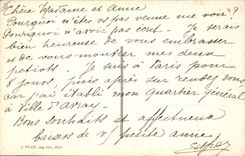 Chère Marianne et Annie
Pourquoi n'êtes vs pas venue me voir?
Pourquoi n'avoir pas écrit - Je serais
bien heureuse de vous embrasser
et de vous montrer mes deux
petiots. Je suis à Paris pour
8 jours, puis après sur rendez vous
car j'ai établi mon quartier général
à Ville d'Avray.
Bons souhaits et affectueux
baisers de vs petite amie